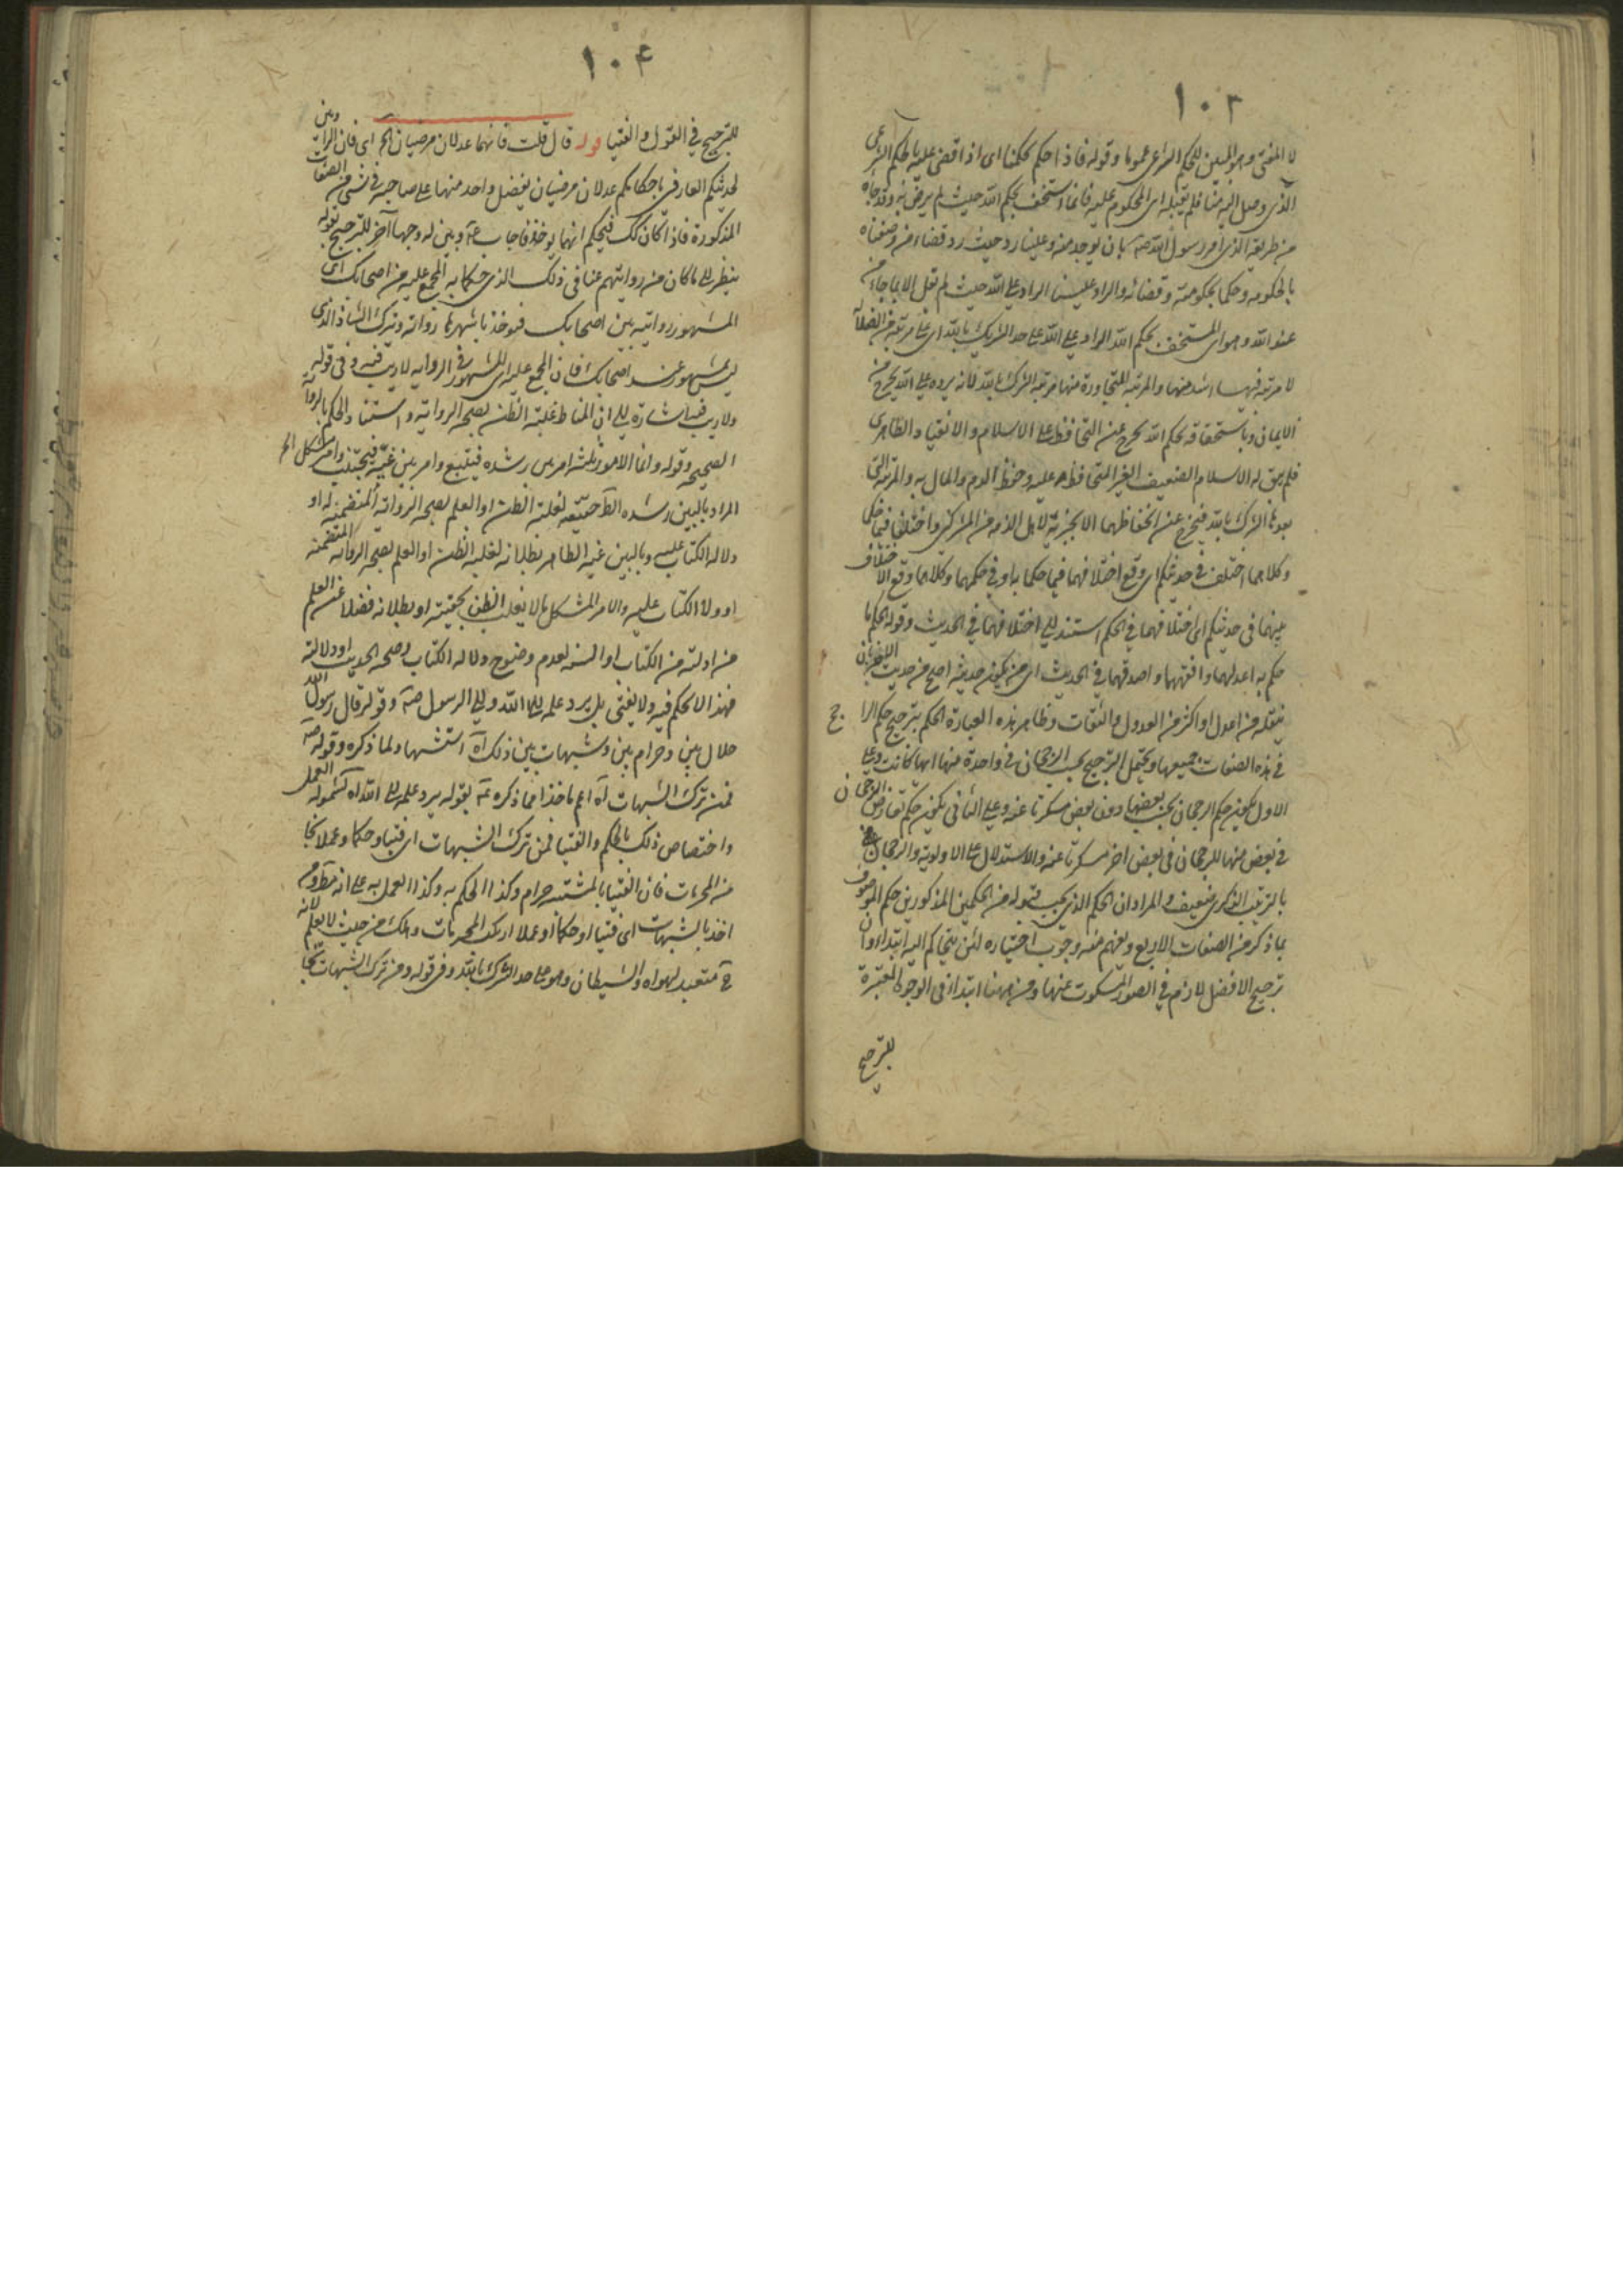 ١٠٣
لا المفتي وهو المبين للحكم الشرعي عموما وقوله فاذا حكم بحكمنا اى اذا قضى عليه بالحكم الشرعي
الذى وصل اليه منا فلم يقبله اى المحكوم عليه فانما استخف بحكم الله حيث لم يرض به وقد جاء
من طريقه الذى امر رسول الله بان يوخذ منه وعلينا رد حيث رد قضاء من وصفناه
بالحكومه وحكما بحكومته وقضائه والراد علينا الراد على الله حيث لم نقل الا بما جاء من
عند الله وهو اى المستخف بحكم الله الراد على الله على حد الشرك بالله اى على مرتبه من الضلالة
لا مرتبه فيها اشد منها والمرتبه المتجاوزة منها مرتبه الشرك بالله لانه يرده على الله يخرج من
الايمان وباستخفافه بحكم الله يخرج عن التحافظ على الاسلام والانقياد الظاهرى
فلم يبق له الاسلام الضعيف الغير المتحافظ عليه وحفظ الدم والمال به والمرتبه التى
بعدها الشرك بالله فيخرج عن انحفاظهما الا بجزية لاهل الذمه من المشركين واختلفا فيما حكما
وكلاهما اختلف في حديثكم اى وقع اختلافهما فيما حكما به او في حكمهما وكلاهما وقع الاختلاف
بينهما في حديثكم اى اختلافهما في الحكم استند الى اختلافهما في الحديث وقوله الحكم ما
حكم به اعدلهما وافقههما واصدقهما في الحديث اى من يكون حديثه اصح من حديث الاخر بان
ينقله من اعدل او اكثر من العدول والثقات وظاهر هذه العبارة الحكم بترجيح حكم الراجح
في هذه الصفات جميعها ويحتمل الترجيح بحسب الرجحان في واحدة منها ايها كانت وعلى
الاول يكون حكم الرجحان بحسب بعضها دون بعض مسكوتا عنه وعلى الثانى يكون حكم تعارض الرجحان
في بعض منها للرجحان في بعض اخر مسكوتا عنه والاستدلال على الاولوية والرجحان
بالترتيب الذكرى ضعيف والمراد ان الحكم الذى يجب قبوله من الحكمين المذكورين حكم الموصوف
بما ذكر من الصفات الاربع ويفهم منه وجوب اختياره لئن يتحاكم اليه ابتداء وان
ترجيح الافضل لازم في الصور المسكوت عنها ومن هيهنا ابتدا في الوجوه المعتبرة
للترجيح
١٠٤
للترجيح في القول والفتيا قوله قال قلت فانهما عدلان مرضيان الخ اى فان الراويين
لحديثكم العارفين باحكامكم عدلان مرضيان لا يفضل واحد منهما على صاحبه في شئ من الصفات
المذكورة فاذا كان كك فبحكم ايهما يوخذ فاجاب وبين له وجها آخر للترجيح بقوله
ينظر الى ما كان من روايتهم عنا في ذلك الذى حكما به المجمع عليه من اصحابك اى
المشهور روايته بين اصحابك فيوخذ باشهرهما رواته ويترك الشاذ الذى
ليس بمشهور عند اصحابك فان المجمع عليه اى المشهور في الروايه لا ريب فيه وفى قوله
ولا ريب فيه اشارة الى ان المناط غلبة الظن بصحة الرواية واستناد الحكم بالرواية
الصحيحه وقوله وانما الامور ثلثه امر بين رشده فيتبع وامر بين غيه فيجتنب وامر مشكل الخ
المراد بالبين رشده الظاهر حقيته لغلبة الظن او العلم بصحة الرواية المتضمنه له او
دلاله الكتاب عليه وبالبين غيه الظاهر بطلانه لغلبه الظن او العلم بصحة الرواية المتضمنه
او دلالة الكتاب عليه والامر المشكل ما لا يغلب الظن بحقيته او بطلانه فضلا عن العلم
من ادلته من الكتاب او السنه لعدم وضوح دلاله الكتاب وصحه الحديث او دلالته
فهذا لا يحكم فيه ولا يفتى بل يرد علمه الى الله والى الرسول وقوله قال رسول الله
حلال بين وحرام بين وشبهات بين ذلك اه استشهاد لما ذكره وقوله
فمن ترك الشبهات اه اعم ماخذا مما ذكره بقوله يرد علمه الى الله اه لشموله العمل
واختصاص ذلك بالحكم والفتيا فمن ترك الشبهات اى فتيا وحكما وعملا نجا
من المحرمات فان الفتيا بالمشتبه حرام وكذا الحكم به وكذا العمل به على انه ومن
اخذ بالشبهات اى فتيا او حكما او عملا ارتكب المحرمات وهلك من حيث لا يعلم لانه
ح متعبد لهواه والشيطان وهو على حد الشرك بالله وفي قوله ومن ترك الشبهات نجا